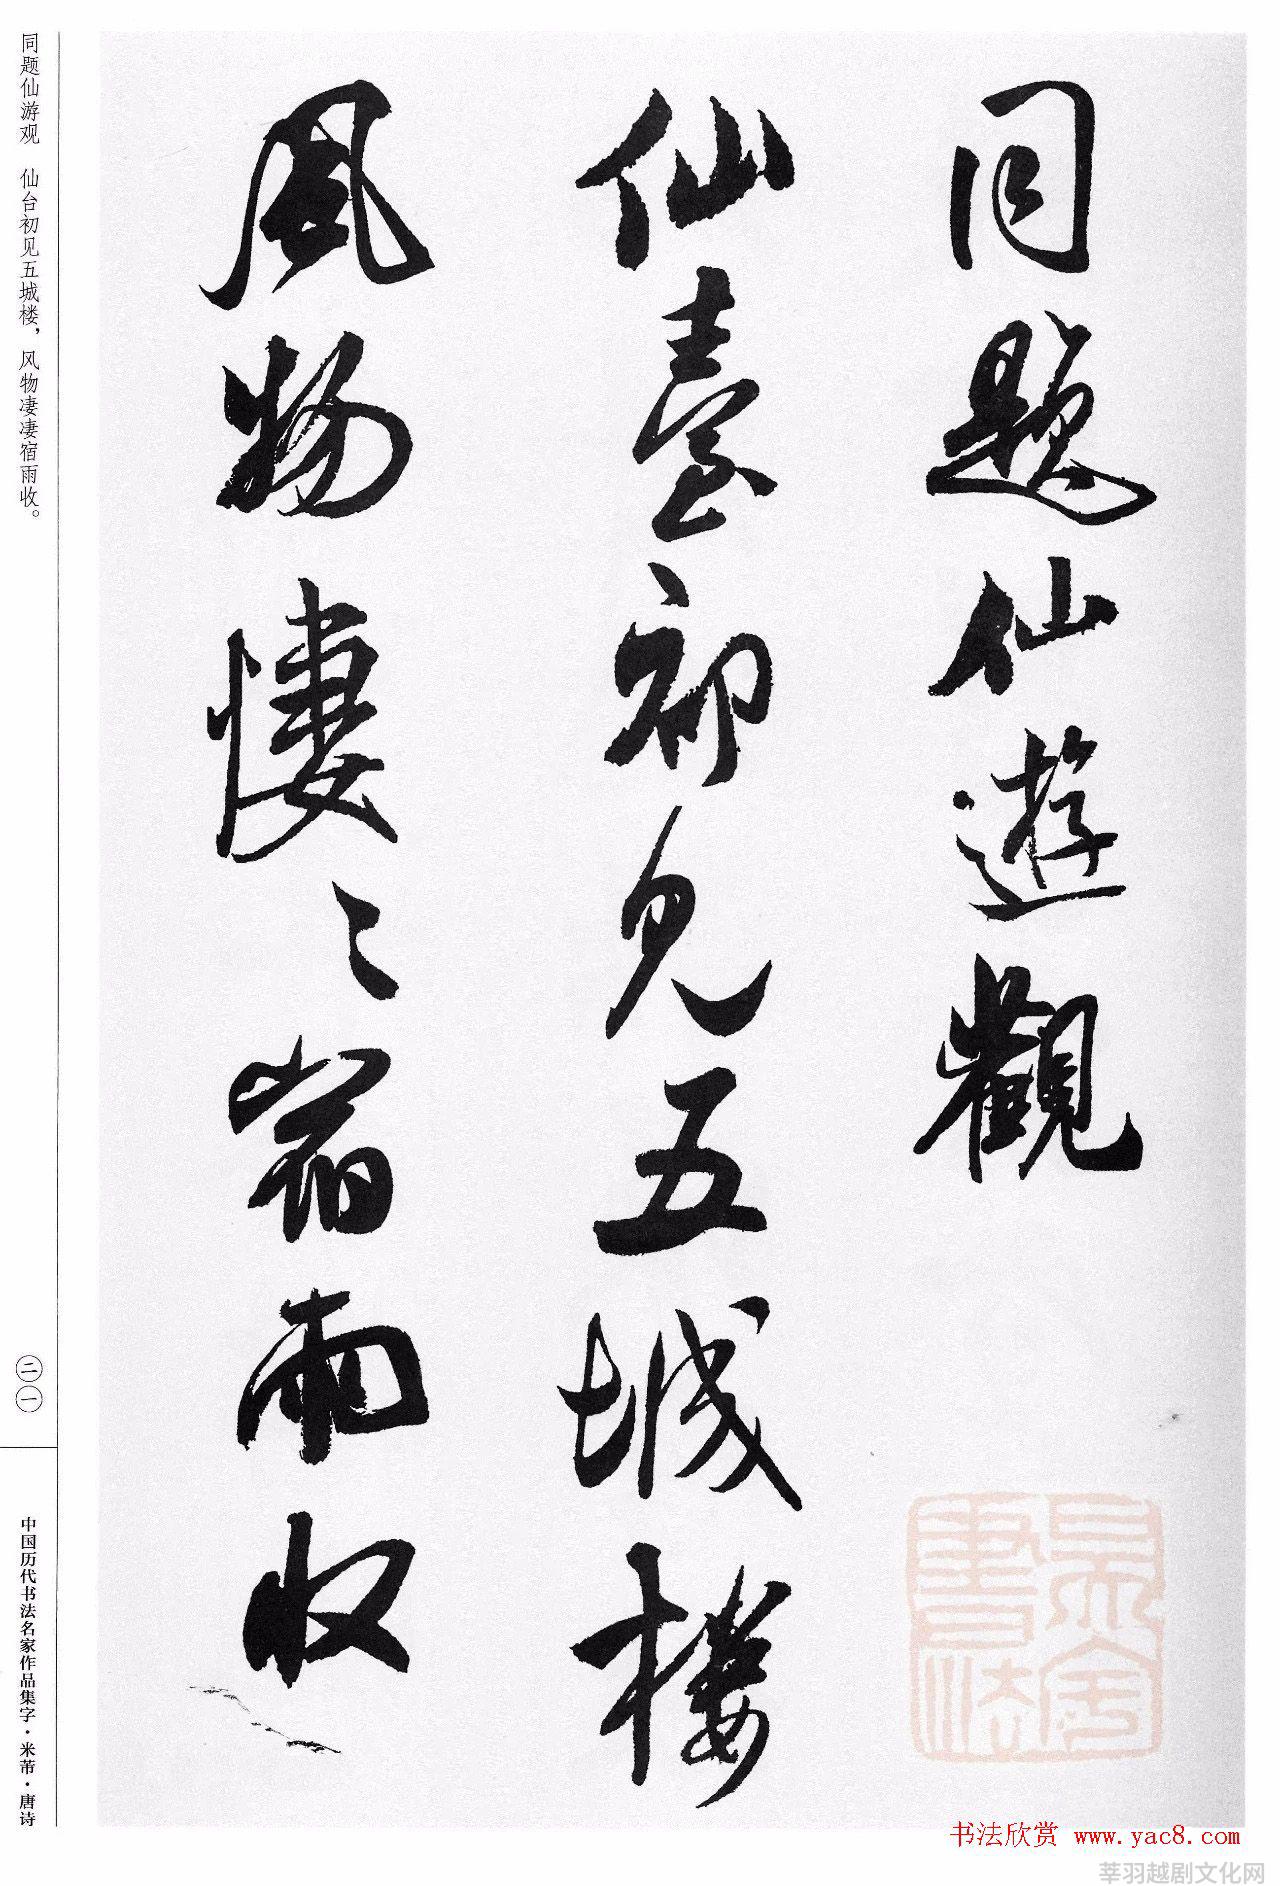 同题仙遊觀
仙臺初見五城樓
風物悽々宿雨收
同题仙游观　仙台初见五城楼，风物凄凄宿雨收。
二一
中国历代书法名家作品集字·米芾·唐诗
书法欣赏 www.yac8.com
莘羽越剧文化网